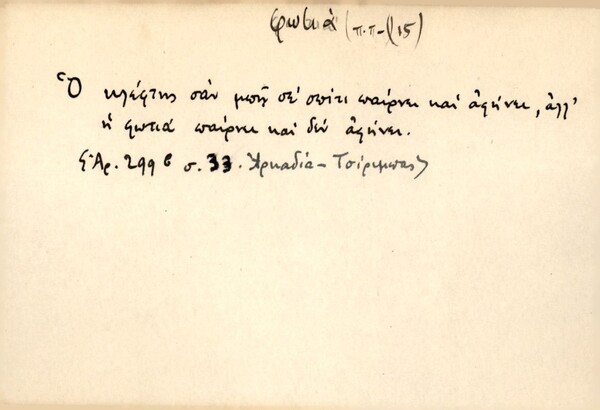 φωτιά (π.π-(15)
Ὁ κλέφτης σὰν μπῇ σὲ σπίτι παίρνει καὶ ἀφήνει, ἀλλ'
ἡ φωτιὰ παίρνει καὶ δὲν ἀφήνει.
Ἀρ. 299 σ. 33. Ἀρκαδία - Τσίριμπας